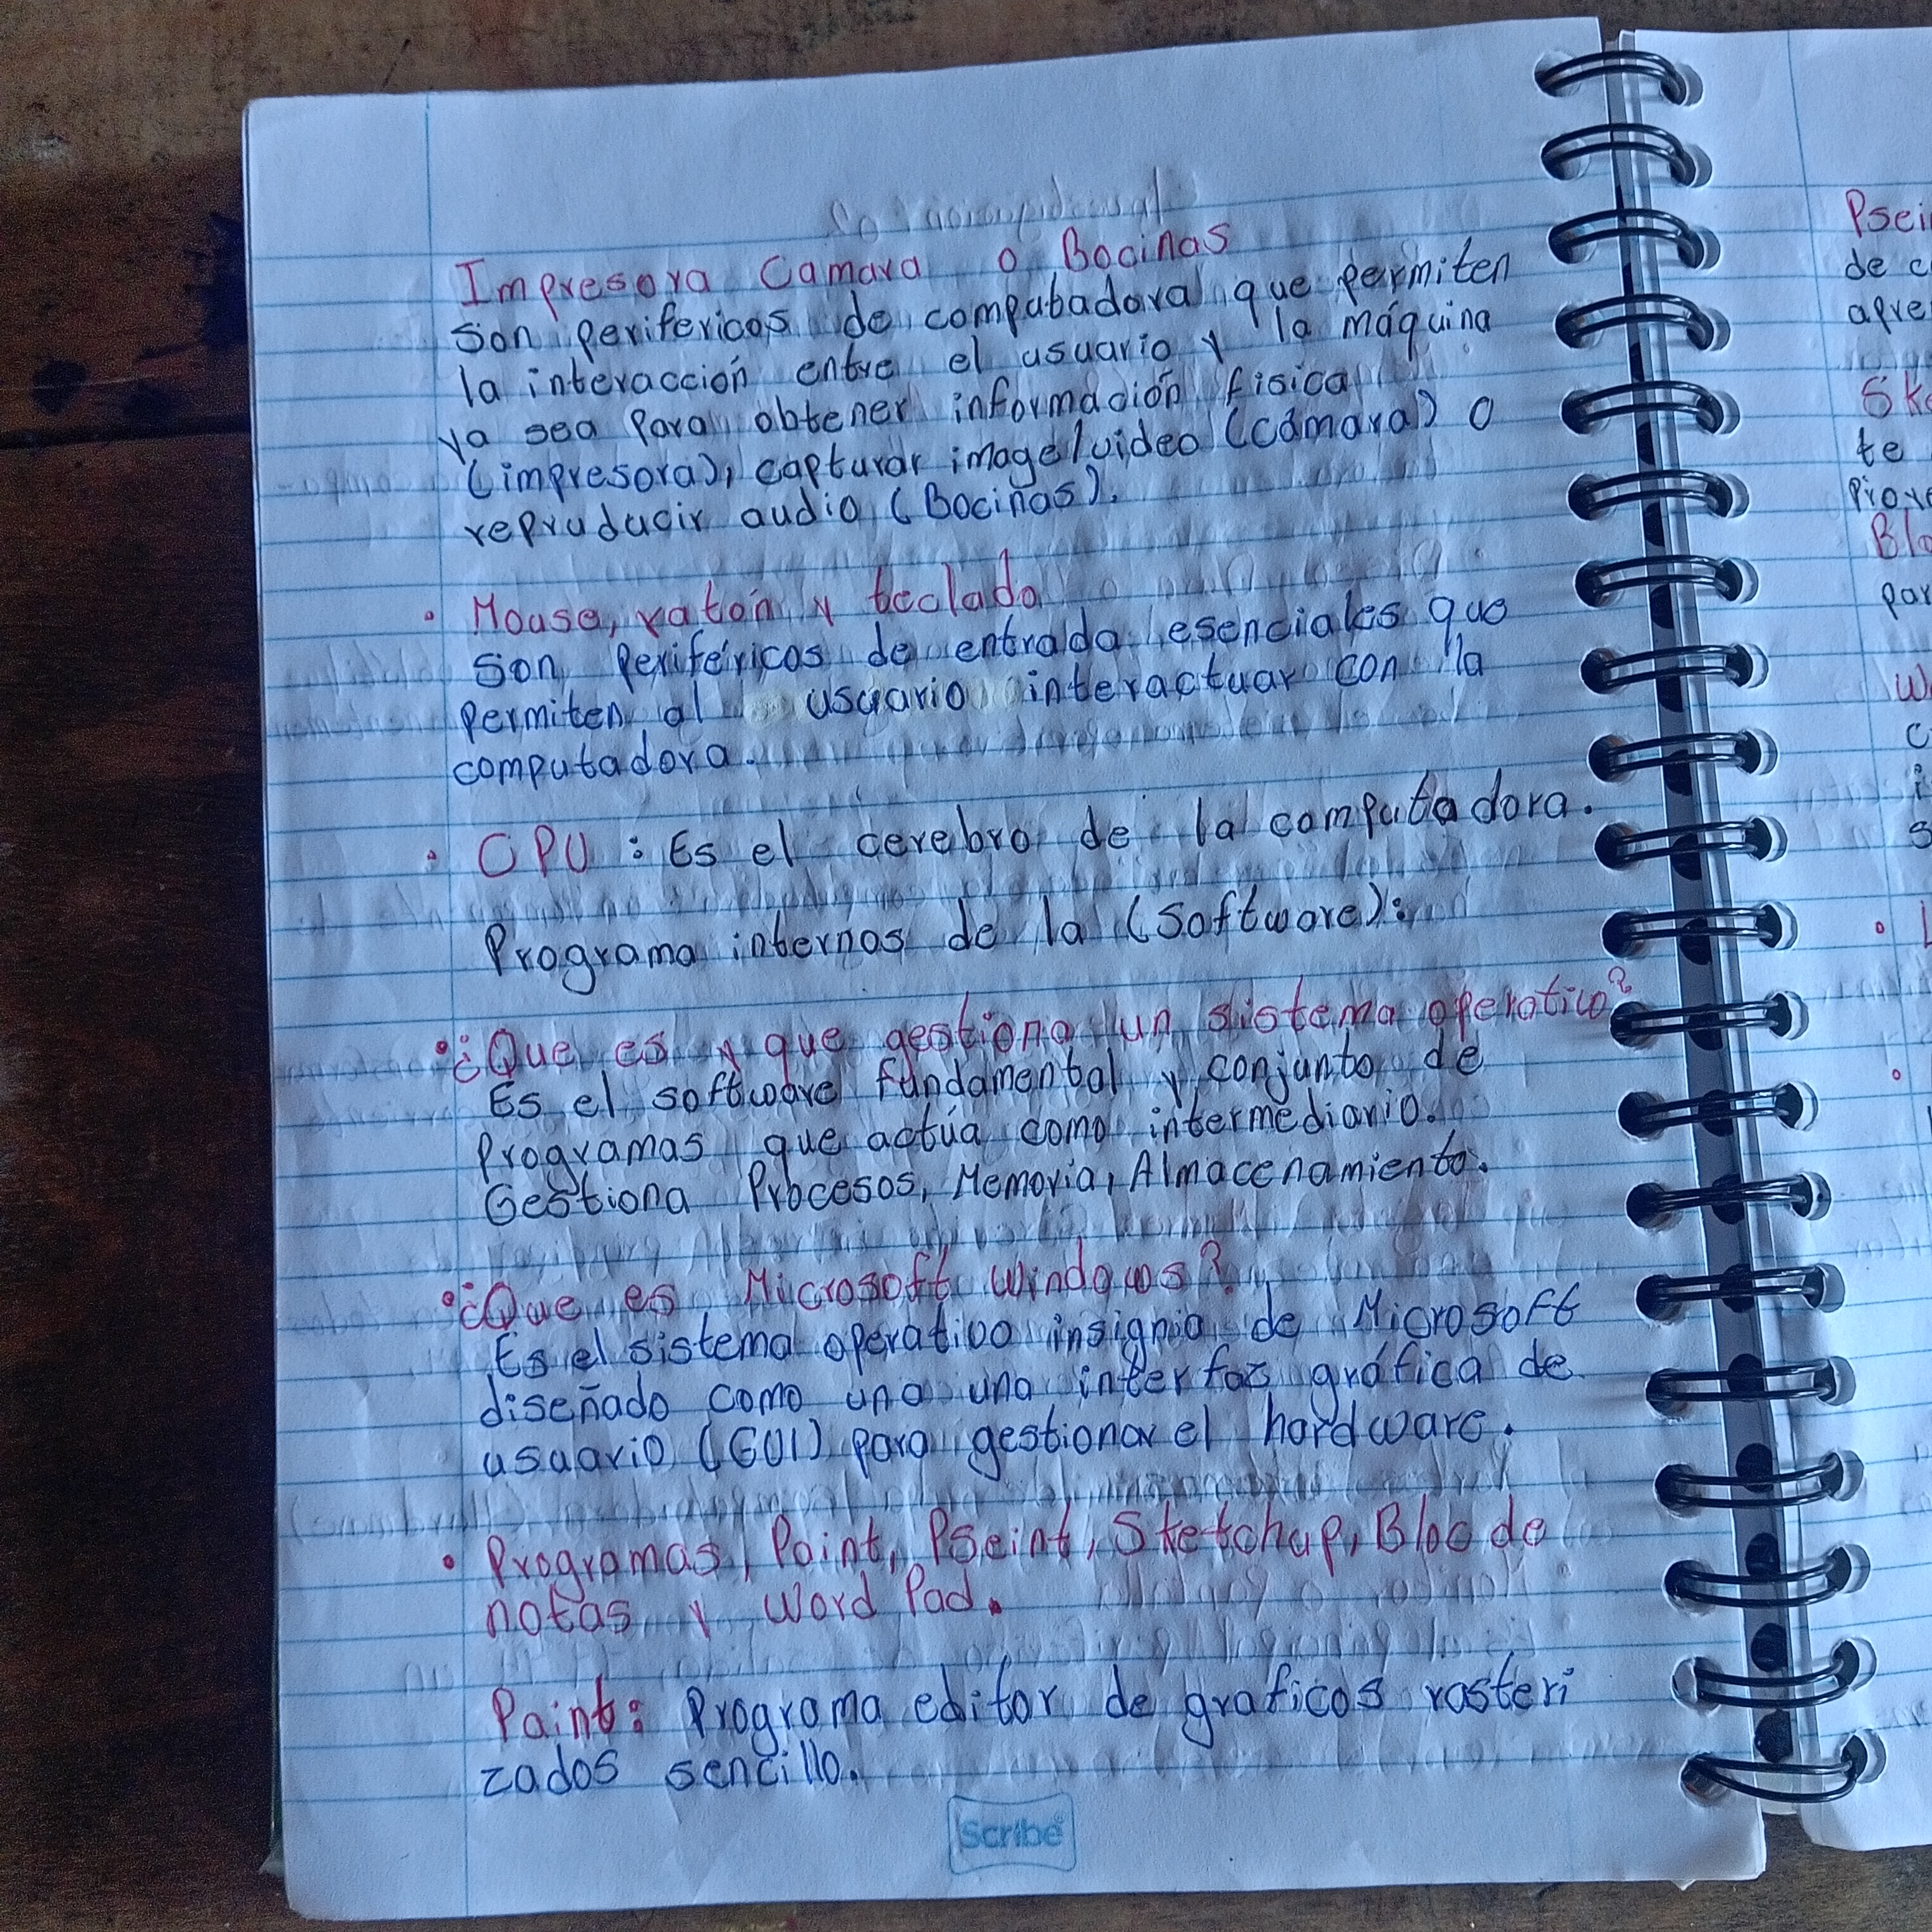 Impresora Camara o Bocinas
Son perifericos de computadora que permiten
la interacción entre el usuario y la máquina
ya sea para obtener información fisica
(impresora), capturar image/video (cámara) o
repruducir audio (Bocinas).
• Mouse, ratón y teclado
Son periféricos de entrada esenciales que
permiten al usuario interactuar con la
computadora.
• CPU : Es el cerebro de la computadora.
Programa internos de la (Software):
• ¿Que es y que gestiona un sistema operativo?
Es el software fundamental y conjunto de
programas que actúa como intermediario.
Gestiona Procesos, Memoria, Almacenamiento.
• ¿Que es Microsoft Windows?
Es el sistema operativo insignia de Microsoft
diseñado como una una interfaz gráfica de
usuario (GUI) para gestionar el hardware.
• Programas, Paint, PSeint, Sketchup, Bloc de
notas y Word Pad.
Paint: Programa editor de graficos rasteri
zados sencillo.
Scribe
Psei
de c
apre
Sk
te
Bl
par